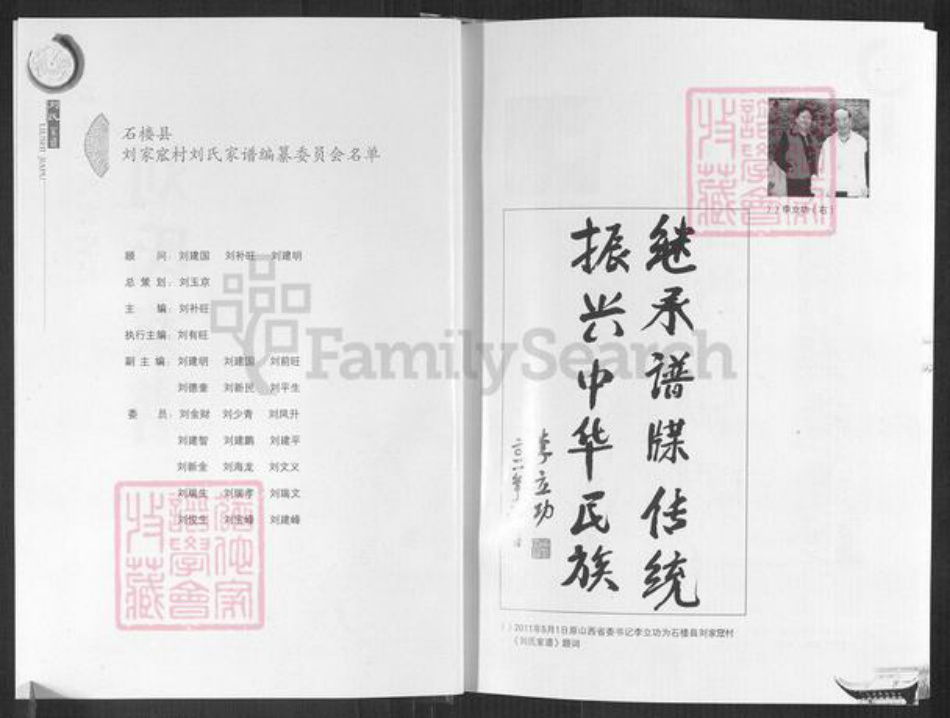 刘氏家谱
LIUSHI JIAPU
石楼县
刘家窊村刘氏家谱编纂委员会名单
顾 问：刘建国 刘补旺 刘建明
总 策 划：刘玉京
主 编：刘补旺
执行主编：刘有旺
副 主 编：刘建明 刘建国 刘前旺
刘德奎 刘新民 刘平生
委 员：刘金财 刘少青 刘凤升
刘建智 刘建鹏 刘建平
刘新金 刘海龙 刘文义
刘瑞生 刘瑞孝 刘瑞文
刘俊生 刘宝峰 刘建峰
FamilySearch
李立功（右）
继承谱牒传统
振兴中华民族
李立功
2011年5月1日原山西省委书记李立功为石楼县刘家窊村
《刘氏家谱》题词